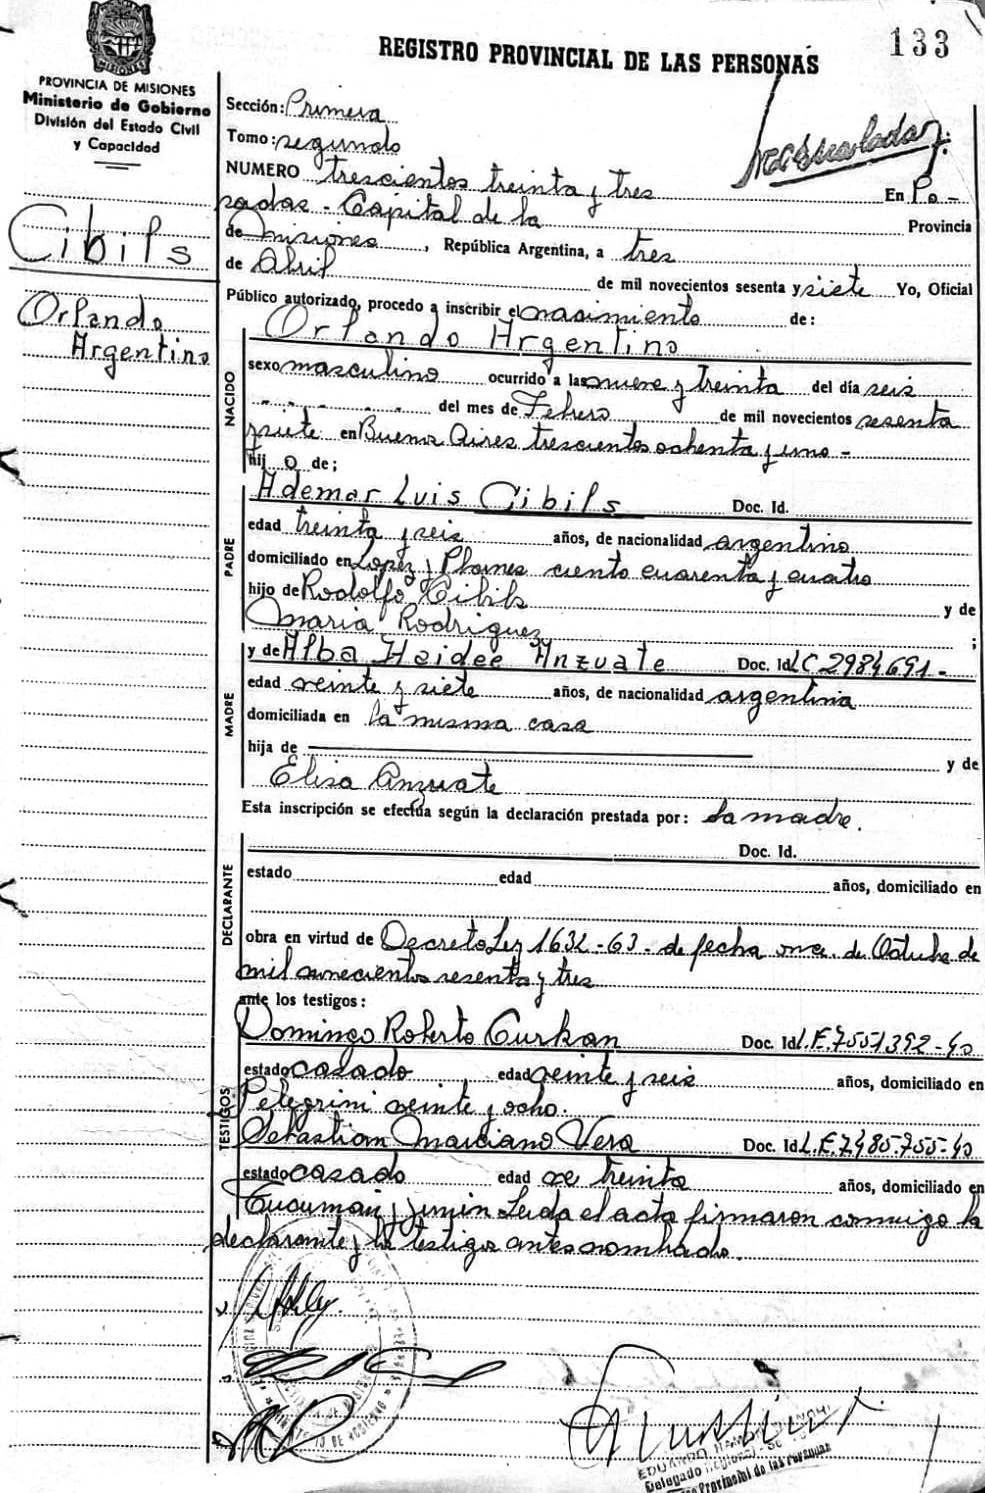 133
REGISTRO PROVINCIAL DE LAS PERSONAS
PROVINCIA DE MISIONES
Ministerio de Gobierno
División del Estado Civil
y Capacidad
Cibils
Orlando
Argentino
Sección: Primera
Tomo: segundo
NUMERO trescientos treinta y tres En Po-
sadas - Capital de la Provincia
de Misiones, República Argentina, a tres
de Abril de mil novecientos sesenta y siete Yo, Oficial
Público autorizado, procedo a inscribir el nacimiento de:
Orlando Argentino
NACIDO
sexo masculino ocurrido a las nueve y treinta del día seis
del mes de Febrero de mil novecientos sesenta
y siete en Buenos Aires trescientos ochenta y uno -
hijo de;
PADRE
Ademar Luis Cibils Doc. Id.
edad treinta y seis años, de nacionalidad argentino
domiciliado en Lopez y Planes ciento cuarenta y cuatro
hijo de Rodolfo Cibils y de
Maria Rodriguez ;
MADRE
y de Alba Haidee Anzuate Doc. Id LC 2984691-
edad veinte y siete años, de nacionalidad argentina
domiciliada en la misma casa
hija de y de
Elisa Anzuate
Esta inscripción se efectúa según la declaración prestada por: la madre.
DECLARANTE
Doc. Id.
estado edad años, domiciliado en
obra en virtud de Decreto Ley 1632-63- de fecha once de Octubre de
mil novecientos sesenta y tres
ante los testigos:
TESTIGOS
Domingo Roberto Curkan Doc. Id L.E.7551392-
estado casado edad veinte y seis años, domiciliado en
Pelegrini veinte y ocho.
Sebastian Marciano Vera Doc. Id L.E.7485.755-
estado casado edad de treinta años, domiciliado en
Tucuman y Junin Leida el acta firmaron conmigo la
declarante y los testigos antes nombrados.
EDUARDO
Delegado
Provincial de las Personas